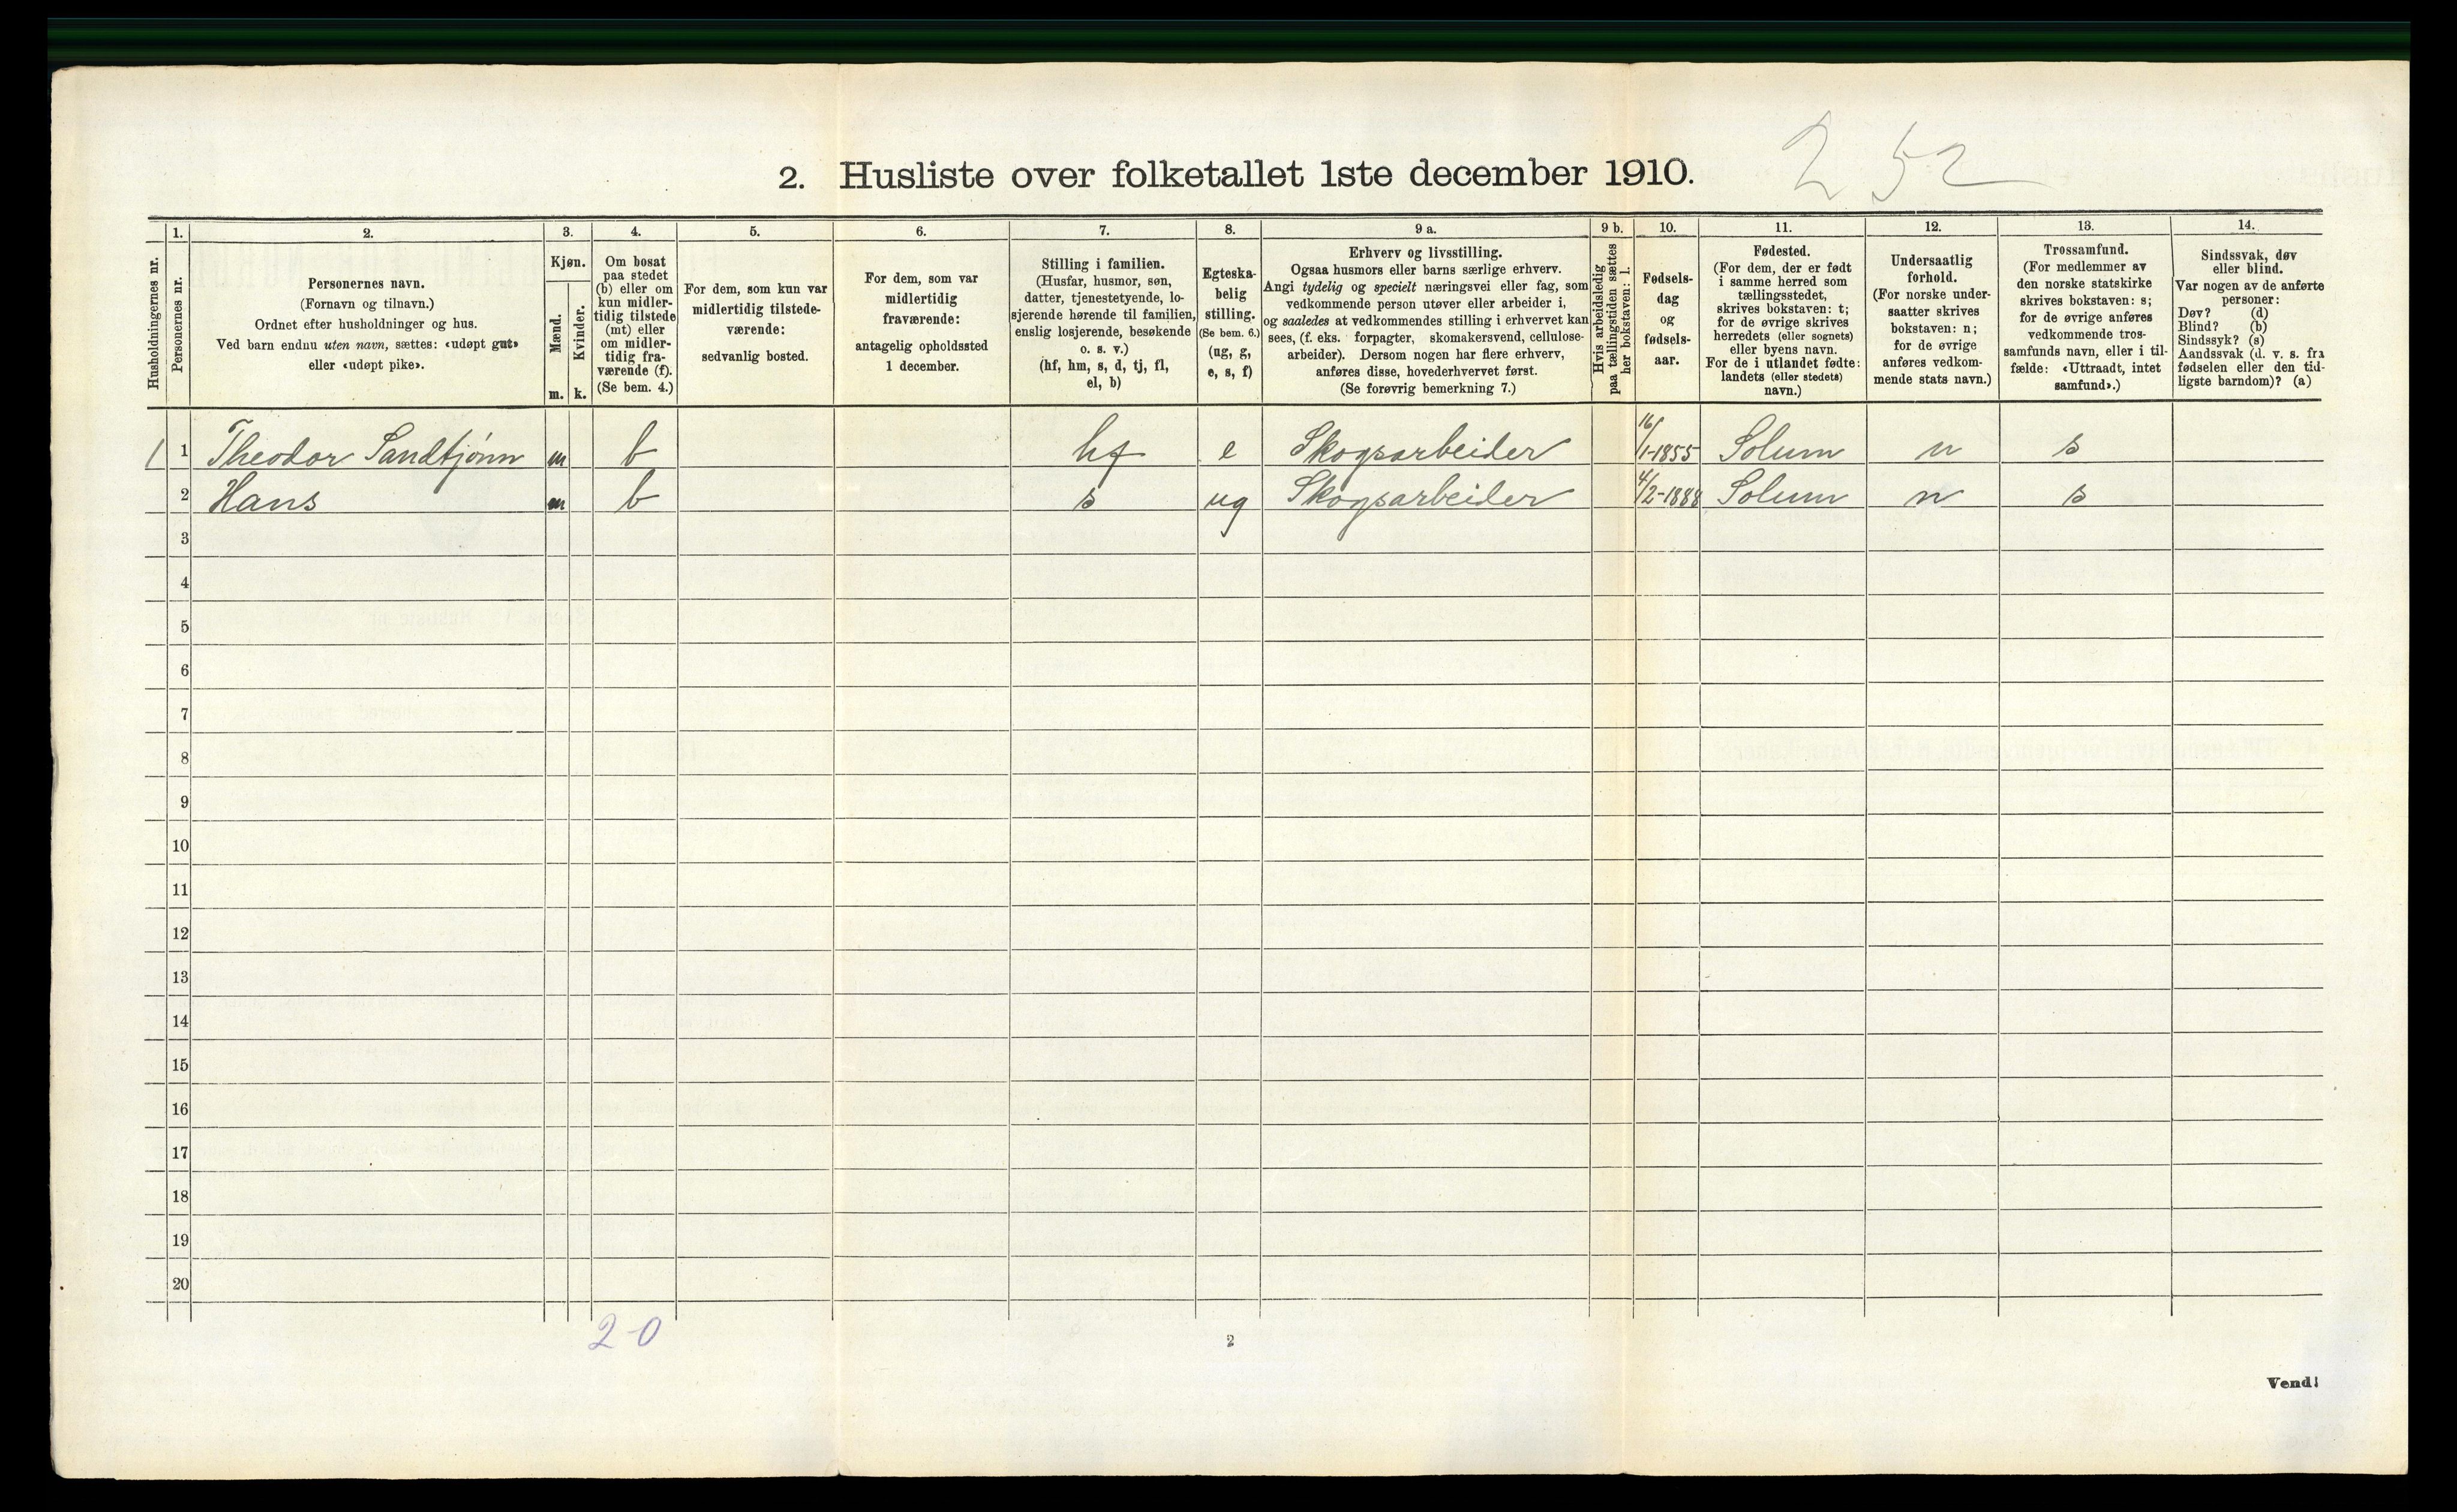 252
2. Husliste over folketallet 1ste december 1910.
Husholdningernes nr.
1.
Personernes nr.
2.
Personernes navn.
(Fornavn og tilnavn.)
Ordnet efter husholdninger og hus.
Ved barn endnu uten navn, sættes: «udøpt gut»
eller «udøpt pike».
3.
Kjøn.
Mænd.
Kvinder.
m. k.
4.
Om bosat
paa stedet
(b) eller om
kun midler-
tidig tilstede
(mt) eller
om midler-
tidig fra-
værende (f).
(Se bem. 4.)
5.
For dem, som kun var
midlertidig tilstede-
værende:
sedvanlig bosted.
6.
For dem, som var
midlertidig
fraværende:
antagelig opholdssted
1 december.
7.
Stilling i familien.
(Husfar, husmor, søn,
datter, tjenestetyende, lo-
sjerende hørende til familien,
enslig losjerende, besøkende
o. s. v.)
(hf, hm, s, d, tj, fl,
el, b)
8.
Egteska-
belig
stilling.
(Se bem. 6.)
(ug, g,
e, s, f)
9 a.
Erhverv og livsstilling.
Ogsaa husmors eller barns særlige erhverv.
Angi tydelig og specielt næringsvei eller fag, som
vedkommende person utøver eller arbeider i,
og saaledes at vedkommendes stilling i erhvervet kan
sees, (f. eks. forpagter, skomakersvend, cellulose-
arbeider). Dersom nogen har flere erhverv,
anføres disse, hovederhvervet først.
(Se forøvrig bemerkning 7.)
9 b.
Hvis arbeidsledig
paa tællingstiden sættes
her bokstaven: l.
10.
Fødsels-
dag
og
fødsels-
aar.
11.
Fødested.
(For dem, der er født
i samme herred som
tællingsstedet,
skrives bokstaven: t;
for de øvrige skrives
herredets (eller sognets)
eller byens navn.
For de i utlandet fødte:
landets (eller stedets)
navn.)
12.
Undersaatlig
forhold.
(For norske under-
saatter skrives
bokstaven: n;
for de øvrige
anføres vedkom-
mende stats navn.)
13.
Trossamfund.
(For medlemmer av
den norske statskirke
skrives bokstaven: s;
for de øvrige anføres
vedkommende tros-
samfunds navn, eller i til-
fælde: «Uttraadt, intet
samfund».)
14.
Sindssvak, døv
eller blind.
Var nogen av de anførte
personer:
Døv? (d)
Blind? (b)
Sindssyk? (s)
Aandssvak (d. v. s. fra
fødselen eller den tid-
ligste barndom)? (a)
1 1 Theodor Sandtjönn m b hf e Skogsarbeider 16/1-1855 Solum n s
2 Hans m b s ug Skogsarbeider 4/2-1888 Solum n s
3
4
5
6
7
8
9
10
11
12
13
14
15
16
17
18
19
20
2-0
2
Vend!